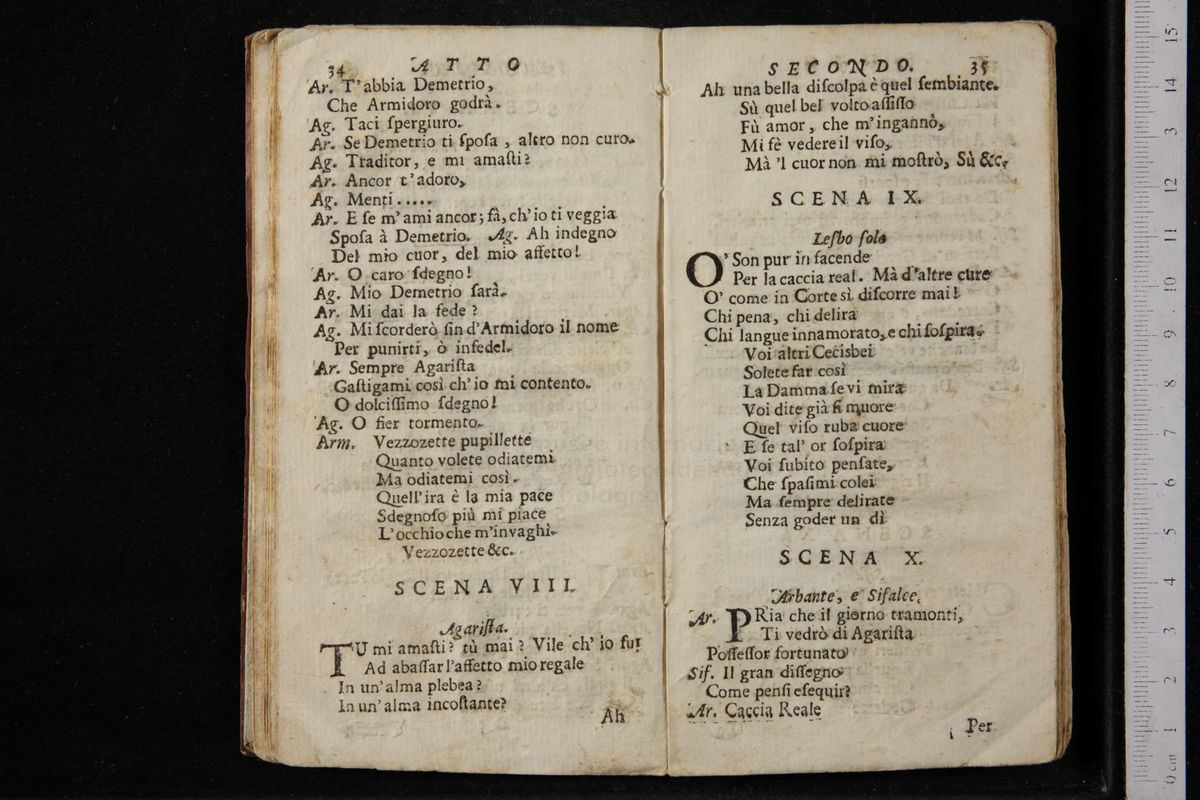 34 ATTO
Ar. T'abbia Demetrio,
Che Armidoro godrà.
Ag. Taci ſpergiuro.
Ar. Se Demetrio ti ſpoſa, altro non curo.
Ag. Traditor, e mi amaſti?
Ar. Ancor t'adoro,
Ag. Menti.....
Ar. E ſe m'ami ancor; fà, ch'io ti veggia
Spoſa à Demetrio. Ag. Ah indegno
Del mio cuor, del mio affetto!
Ar. O caro ſdegno!
Ag. Mio Demetrio ſarà.
Ar. Mi dai la fede?
Ag. Mi ſcorderò ſin d'Armidoro il nome
Per punirti, ò infedel.
Ar. Sempre Agariſta
Gaſtigami così ch'io mi contento.
O dolciſſimo ſdegno!
Ag. O fier tormento.
Arm. Vezzozette pupillette
Quanto volete odiatemi
Ma odiatemi così.
Quell'ira è la mia pace
Sdegnoſo più mi piace
L'occhio che m'invaghì.
Vezzozette &c.
SCENA VIII.
Agariſta.
TU mi amaſti? tù mai? Vile ch'io fui
Ad abaſſar l'affetto mio regale
In un'alma plebea?
In un'alma incoſtante?
Ah
SECONDO. 35
Ah una bella diſcolpa è quel ſembiante.
Sù quel bel volto aſſiſſo
Fù amor, che m'ingannò,
Mi fè vedere il viſo,
Mà 'l cuor non mi moſtrò, Sù &c.
SCENA IX.
Leſbo ſolo
O' Son pur in facende
Per la caccia real. Mà d'altre cure
O' come in Corte sì diſcorre mai!
Chi pena, chi delira
Chi langue innamorato, e chi ſoſpira.
Voi altri Cecisbei
Solete far così
La Damma ſe vi mira
Voi dite già ſi muore
Quel viſo ruba cuore
E ſe tal'or ſoſpira
Voi ſubito penſate,
Che ſpaſimi colei
Ma ſempre delirate
Senza goder un dì
SCENA X.
Arbante, e Sifalce,
Ar. PRia che il giorno tramonti,
Ti vedrò di Agariſta
Poſſeſſor fortunato
Sif. Il gran diſſegno
Come penſi eſequir?
Ar. Caccia Reale
Per